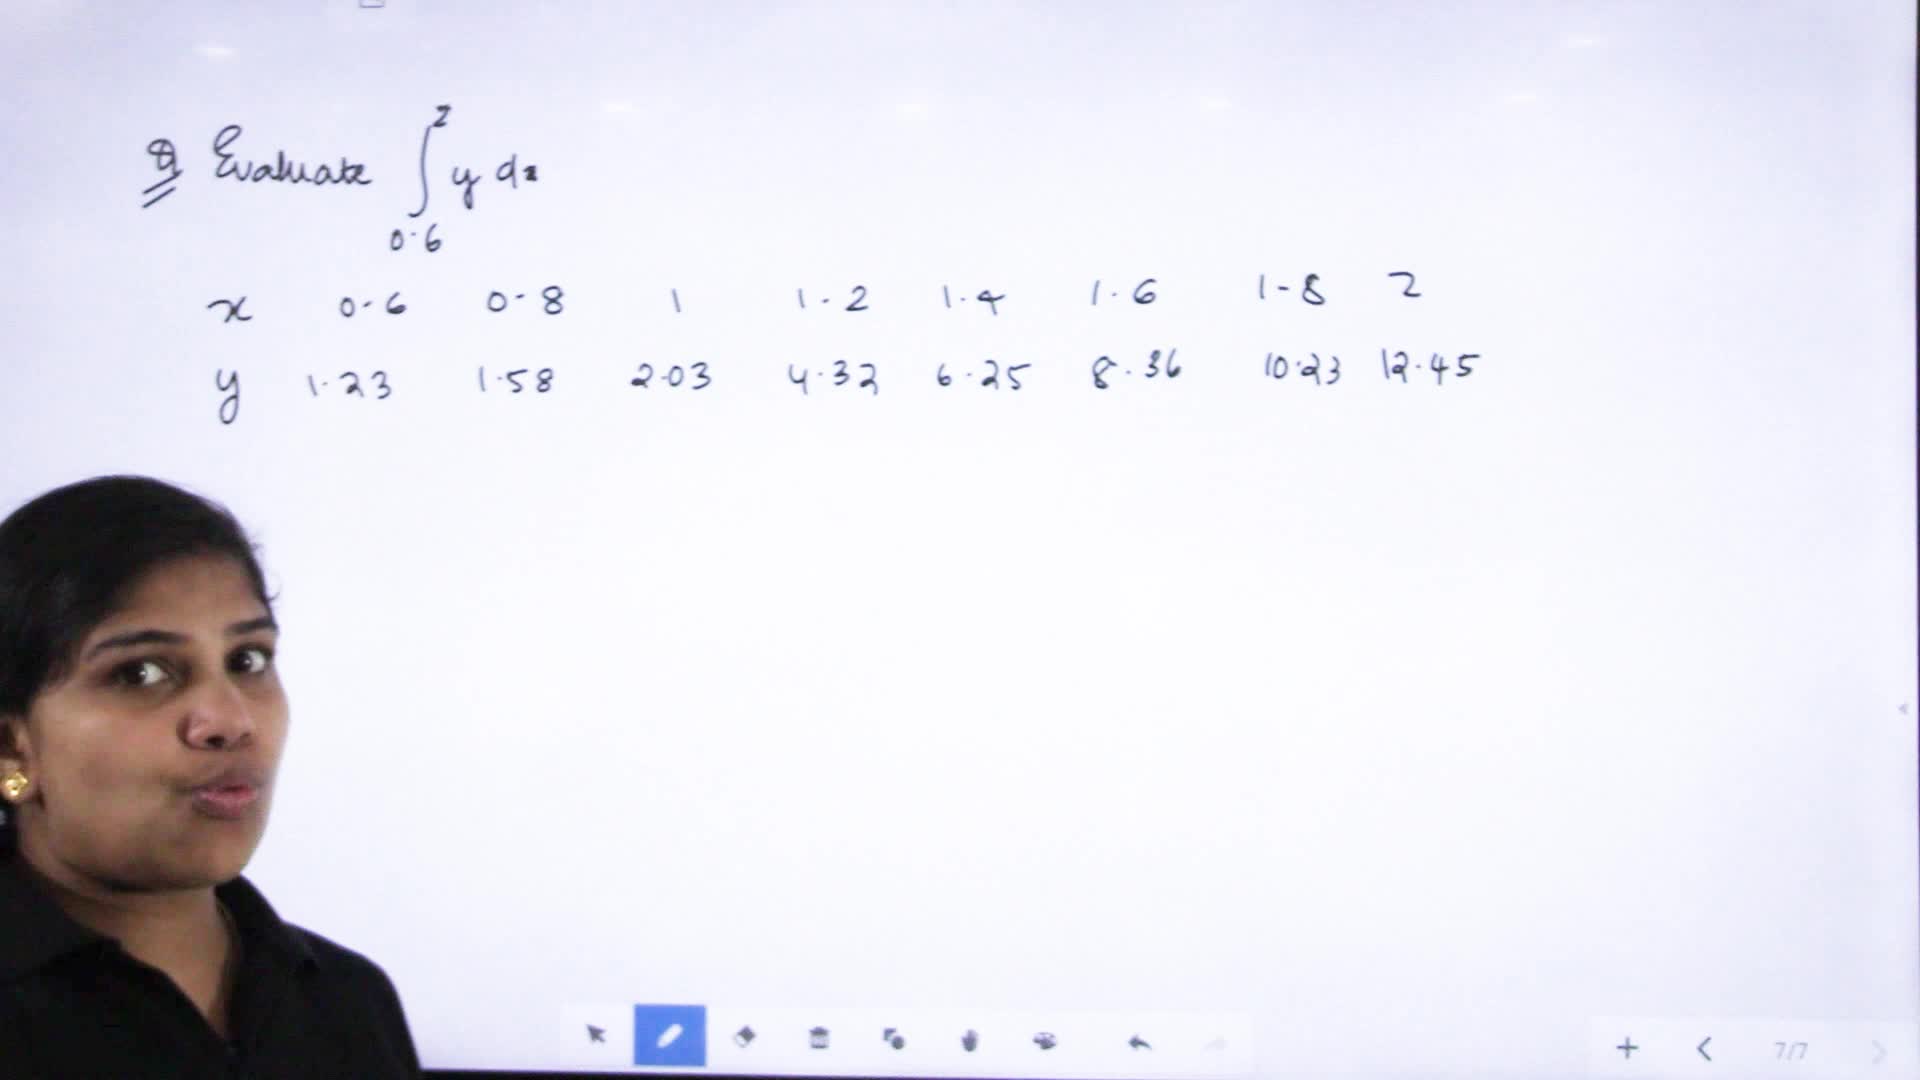 Q Evaluate ∫ 0.6 2 y dx
x 0.6 0.8 1 1.2 1.4 1.6 1.8 2
y 1.23 1.58 2.03 4.32 6.25 8.36 10.23 12.45
7/7